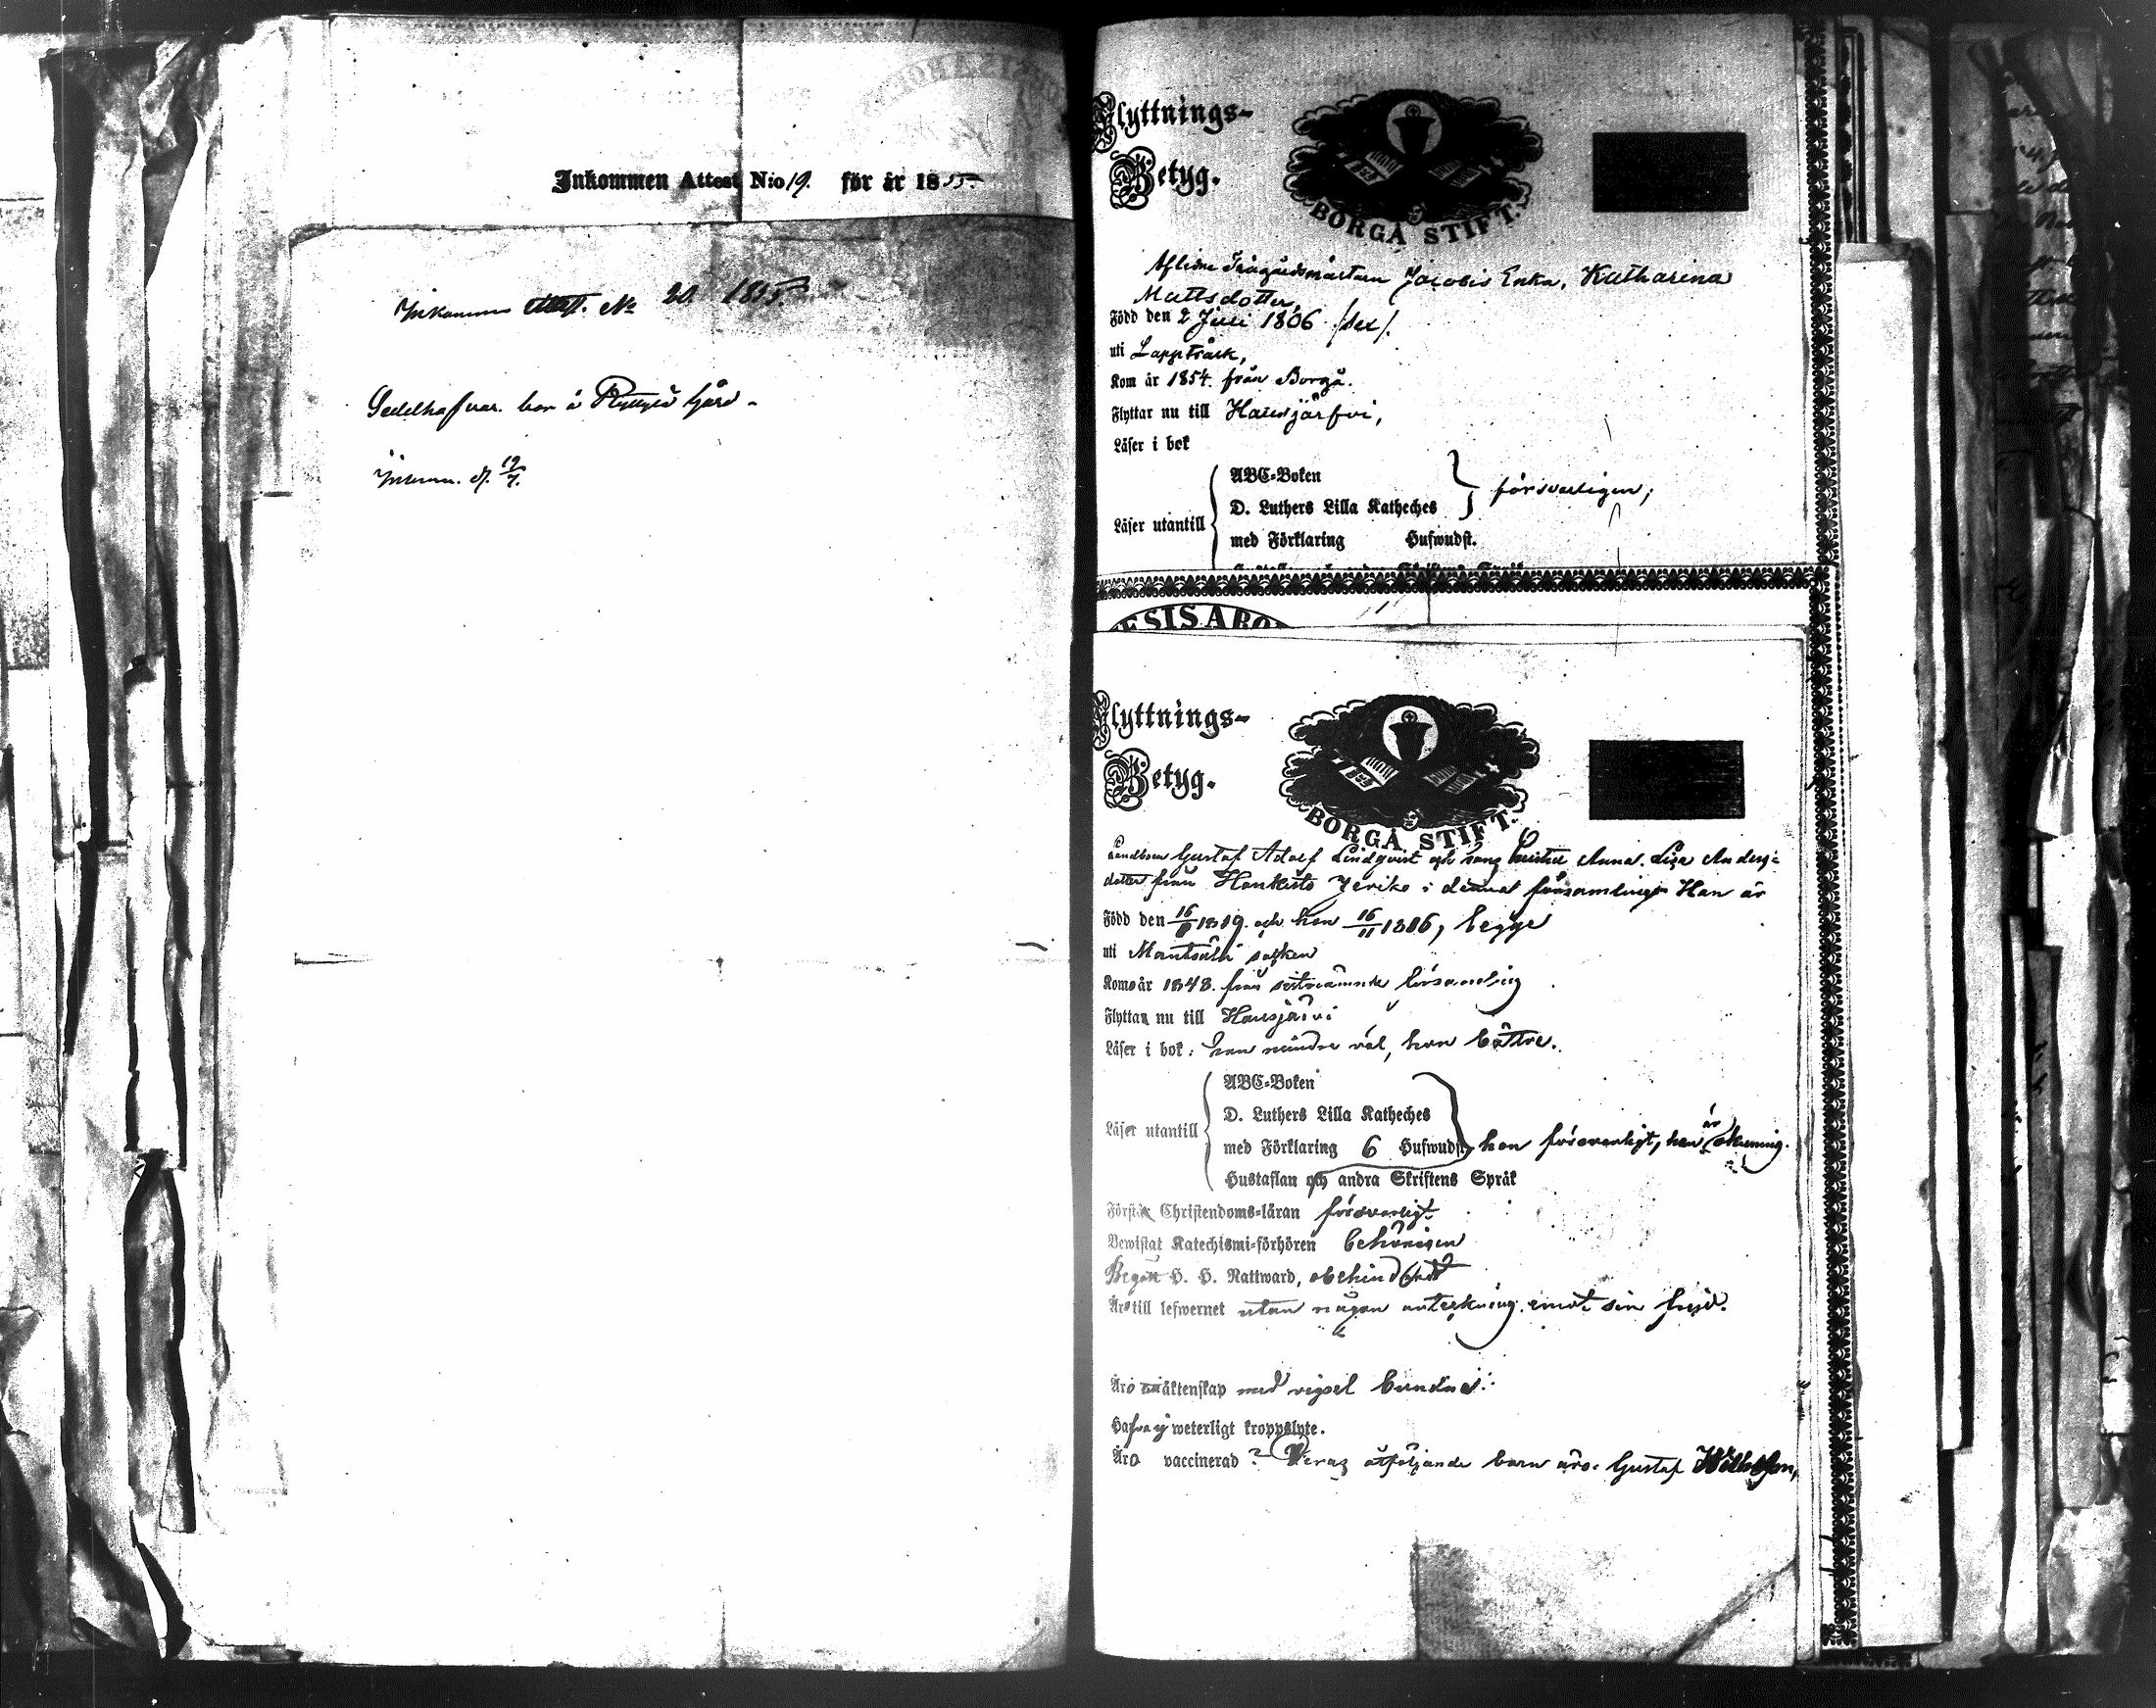 Inkommen Attest N:o 19. för år 1855.
Inkommen Attest. No 20 1855
Sedelhafvar. bor å Ryttylä Gård.
Inkom. d. 12/7.
Flyttnings-
Betyg.
BORGÅ STIFT.
Aflidne Trägårdsmästarn Jacobis Enka, Katharina
Mattsdotter,
Född den 2 Juli 1806 /sex/.
uti Lappträsk,
Kom år 1854. från Borgå.
Flyttar nu till Hausjärfvi,
Läser i bok
ABC-Boken
D. Luthers Lilla Katheches
försvarligen;
Läser utantill
med Förklaring Hufwudst.
ESIS ABO
Flyttnings-
Betyg.
BORGÅ STIFT.
Landboen Gustaf Adolf Lindqvist och hans hustru Anna Lisa Anders-
dotter från Jeriko i denna församling. Han är
Född den 16/6 1819. och hon 16/11 1816, begge
uti Mantsälä socken
Kom år 1848. från sistnämnde församling
Flytta nu till Hausjärvi
Läser i bok: han mindre väl, hon bättre.
ABC-Boken
D. Luthers Lilla Katheches
Läser utantill
med Förklaring 6 Hufwudst. hon försvarligt, han är okunnig.
Hustaflan och andra Skriftens Språk
Förstår Christendoms-läran försvarligt.
Bewistat Katechismi-förhören behörigen
Begått H. H. Nattward, obehindradt
Äro till lefwernet utan någon anteckning emot sin frejd.
Äro äktenskap med vigsel bundne.
Hafva ej weterligt kroppslyte.
Äro vaccinerad? Deras åtföljande barn äro: Gustaf Wilhelm,